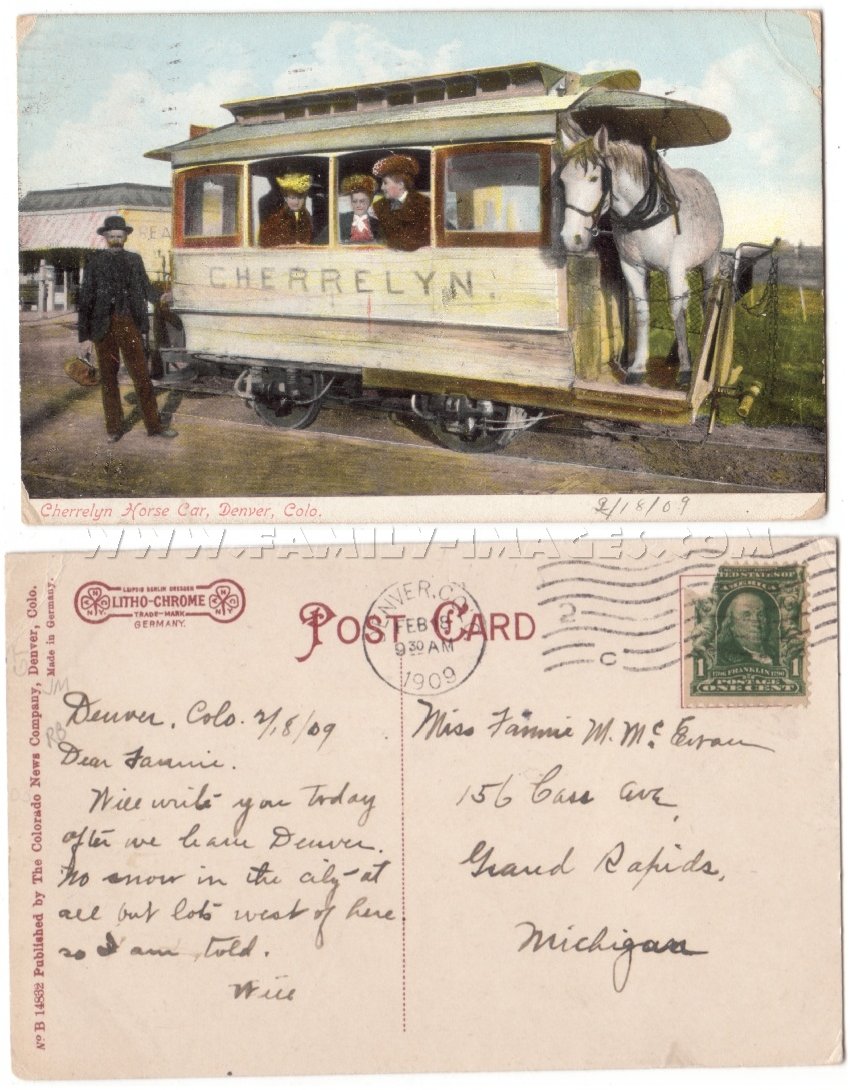 CHERRELYN.
REA
Cherrelyn Horse Car, Denver, Colo.
2/18/09
WWW.FAMILY-IMAGES.COM
LEIPSIG BERLIN DRESDEN
LITHO-CHROME
TRADE-MARK
GERMANY.
POST CARD
DENVER, COLO.
FEB 18
9 30 AM
1909
2
C
UNITED STATES OF
AMERICA
1706 FRANKLIN 1790
1 1
POSTAGE
ONE CENT
Nº B 14832 Published by The Colorado News Company, Denver, Colo.
Made in Germany.
JM
RB
Denver, Colo. 2/18/09
Dear Fannie.
Will write you today
after we leave Denver.
No snow in the city at
all but lots west of here
so I am told.
Will
Miss Fannie M. McEwan
156 Cass Ave,
Grand Rapids,
Michigan